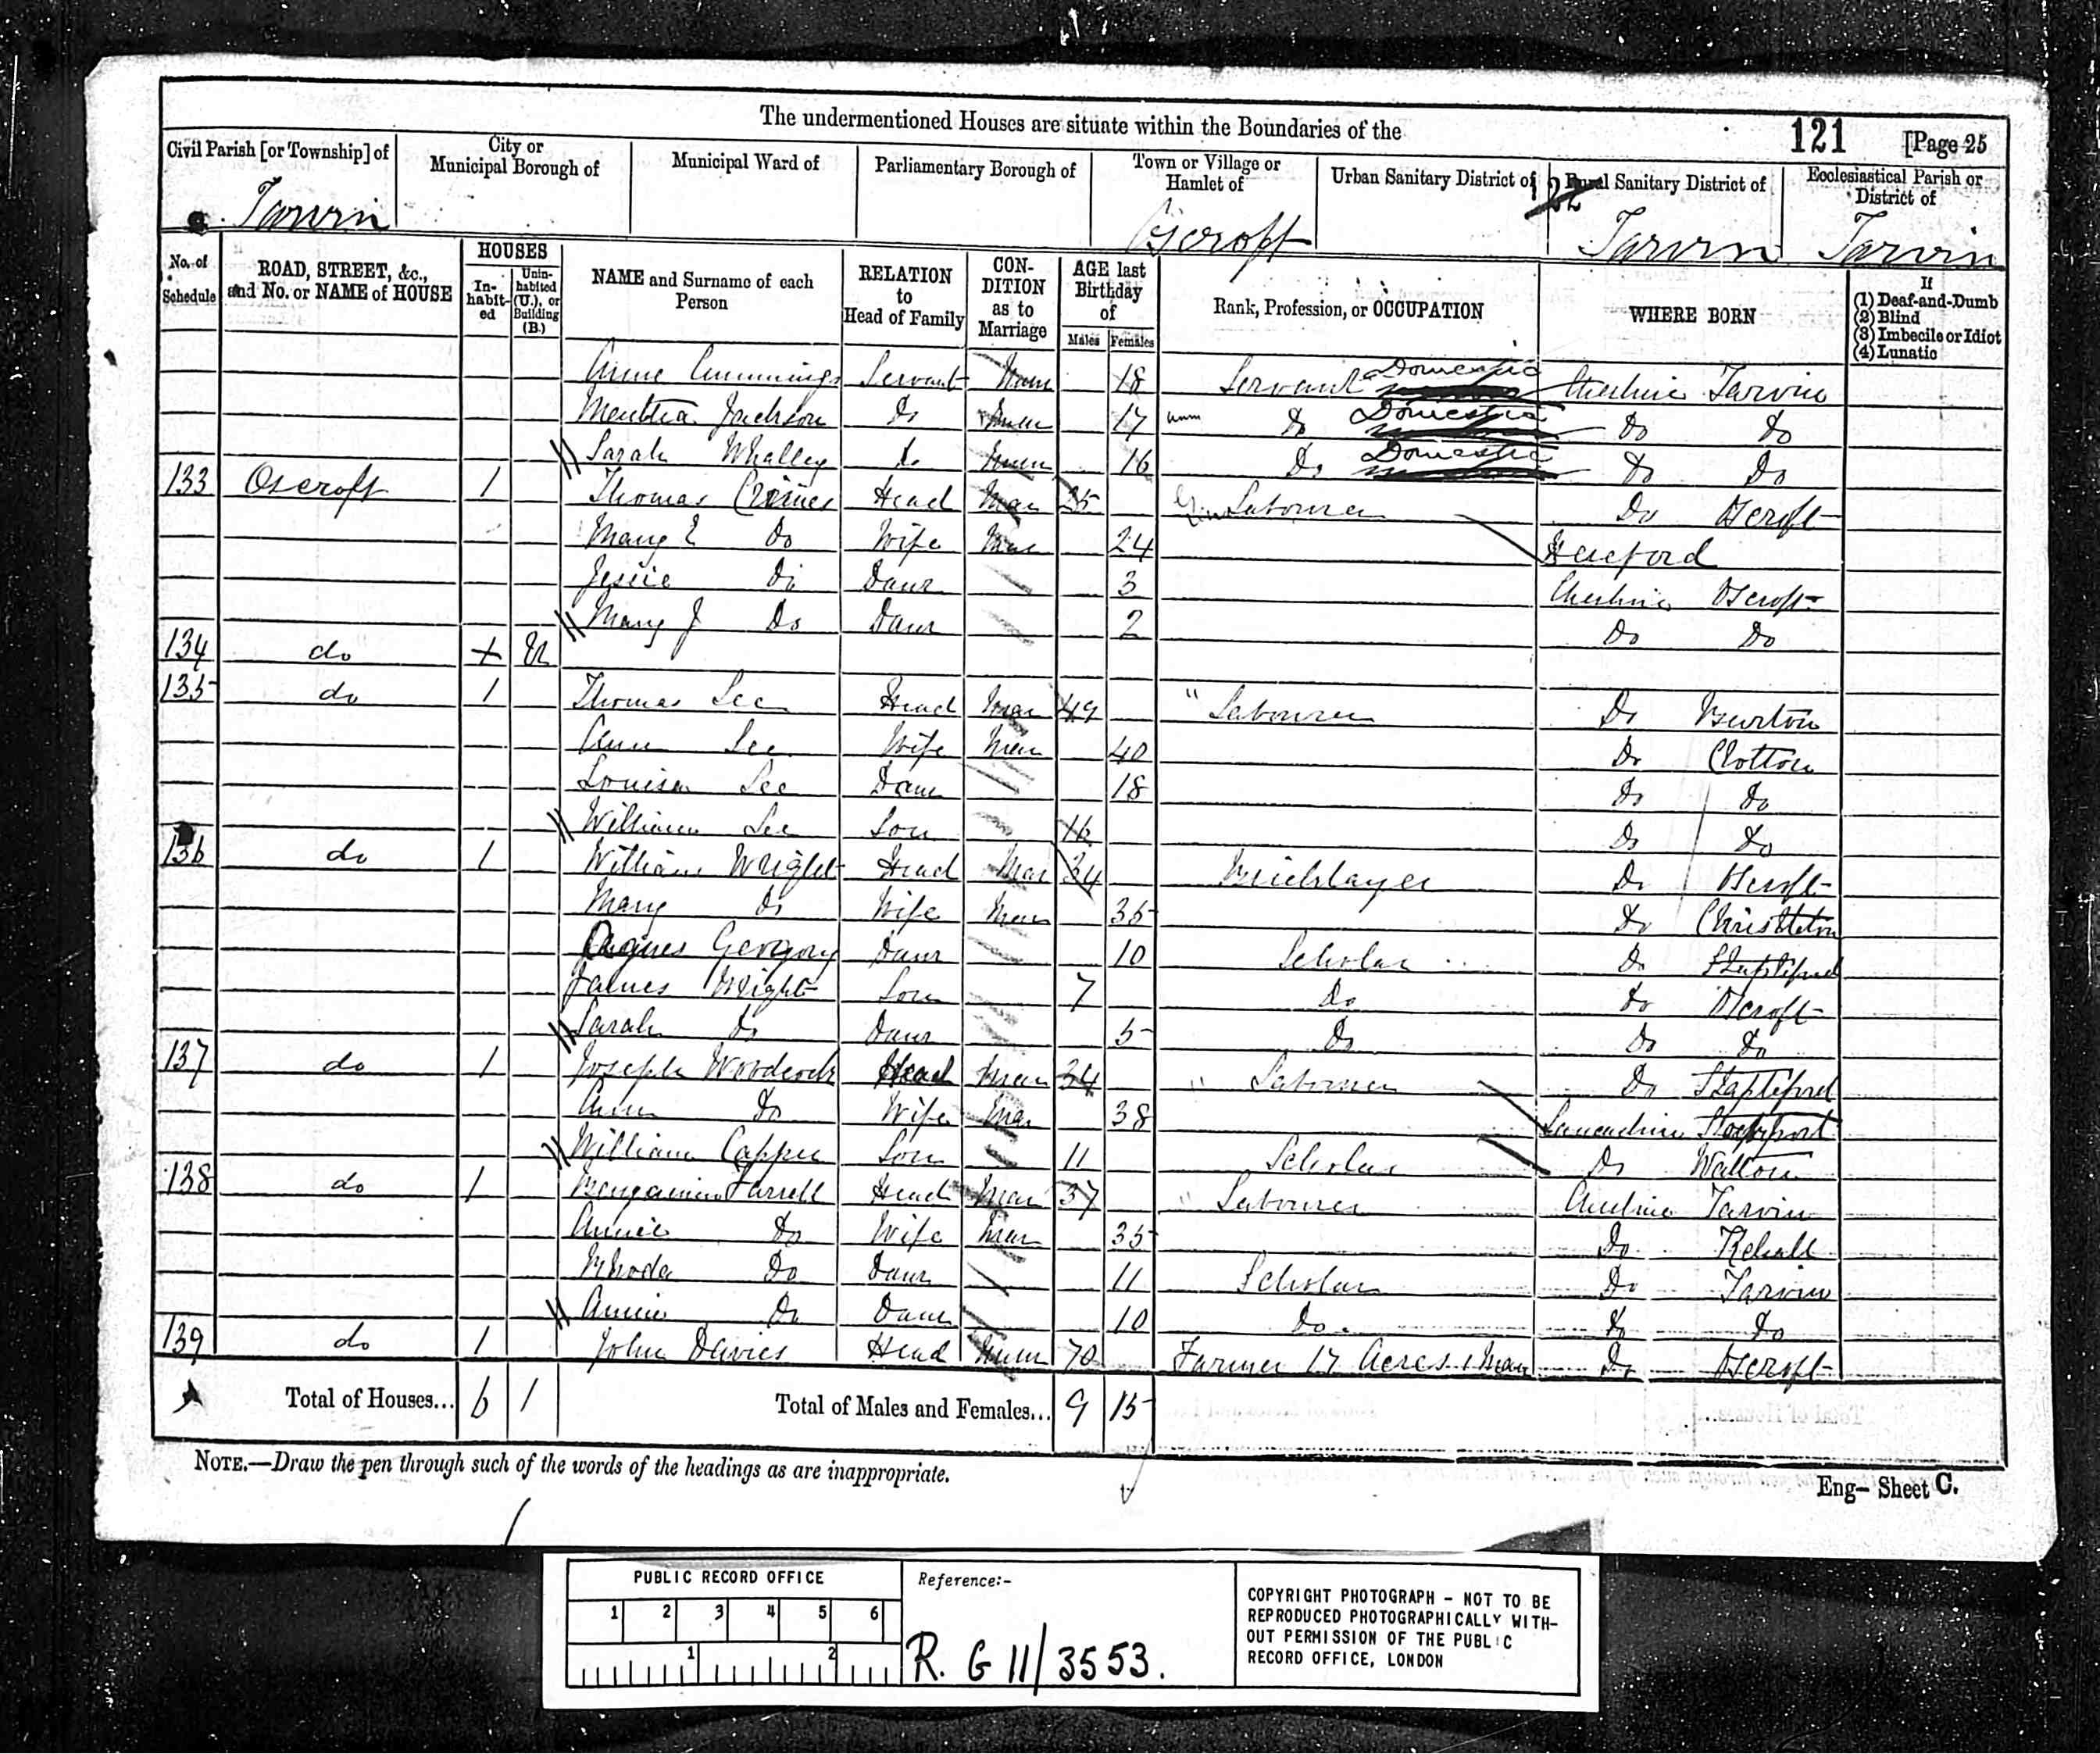 The undermentioned Houses are situate within the Boundaries of the
121 [Page 25
Civil Parish [or Township] of
City or Municipal Borough of
Municipal Ward of
Parliamentary Borough of
Town or Village or Hamlet of
Urban Sanitary District of
Rural Sanitary District of
Ecclesiastical Parish or District of
Tarvin Oscroft Tarvin Tarvin
22
No. of Schedule
ROAD, STREET, &c., and No. or NAME of HOUSE
HOUSES
In-habit-ed
Unin-habited (U.), or Building (B.)
NAME and Surname of each Person
RELATION to Head of Family
CON-DITION as to Marriage
AGE last Birthday of
Males Females
Rank, Profession, or OCCUPATION
WHERE BORN
If
(1) Deaf-and-Dumb
(2) Blind
(3) Imbecile or Idiot
(4) Lunatic
Anne Cummings Servant 18 Servant Domestic Cheshire Tarvin
Jackson Do 17 Do Domestic Do Do
Sarah Whalley do 16 Do Domestic Do Do
133 Oscroft 1 Thomas Head Mar 25 Labourer Do Oscroft
Mary E Do Wife Mar 24 Hereford
Jessie Do Daur 3 Cheshire Oscroft
Mary J Do Daur 2 Do Do
134 do U
135 do 1 Thomas Lee Head Mar 49 " Labourer Do Burton
Ann Lee Wife Mar 40 Do Clotton
Louisa Lee Daur 18 Do Do
William Lee Son 16 Do Do
136 do 1 William Wright Head Mar 34 Bricklayer Do Oscroft
Mary Do Wife Mar 35 Do Christleton
Agnes Gergory Daur 10 Scholar Do Stapleford
James Wright Son 7 Do Do Oscroft
Sarah Do Daur 5 Do Do Do
137 do 1 Joseph Woodcock Head Mar 34 " Labourer Do Stapleford
Ann Do Wife Mar 38 Lancashire Stockport
William Capper Son 11 Scholar Do Walton
138 do 1 Benjamin Farrell Head Mar 37 " Labourer Cheshire Tarvin
Annie Do Wife Mar 35 Do Kelsall
Rhoda Do Daur 11 Scholar Do Tarvin
Annie Do Daur 10 Do Do Do
139 do 1 John Davies Head 70 Farmer 17 Acres 1 Man Do Oscroft
Total of Houses... 6 1 Total of Males and Females... 9 15
NOTE.—Draw the pen through such of the words of the headings as are inappropriate.
Eng— Sheet C.
PUBLIC RECORD OFFICE
1 2 3 4 5 6
1 2
Reference:-
R. G 11/3553.
COPYRIGHT PHOTOGRAPH - NOT TO BE
REPRODUCED PHOTOGRAPHICALLY WITH-
OUT PERMISSION OF THE PUBLIC
RECORD OFFICE, LONDON